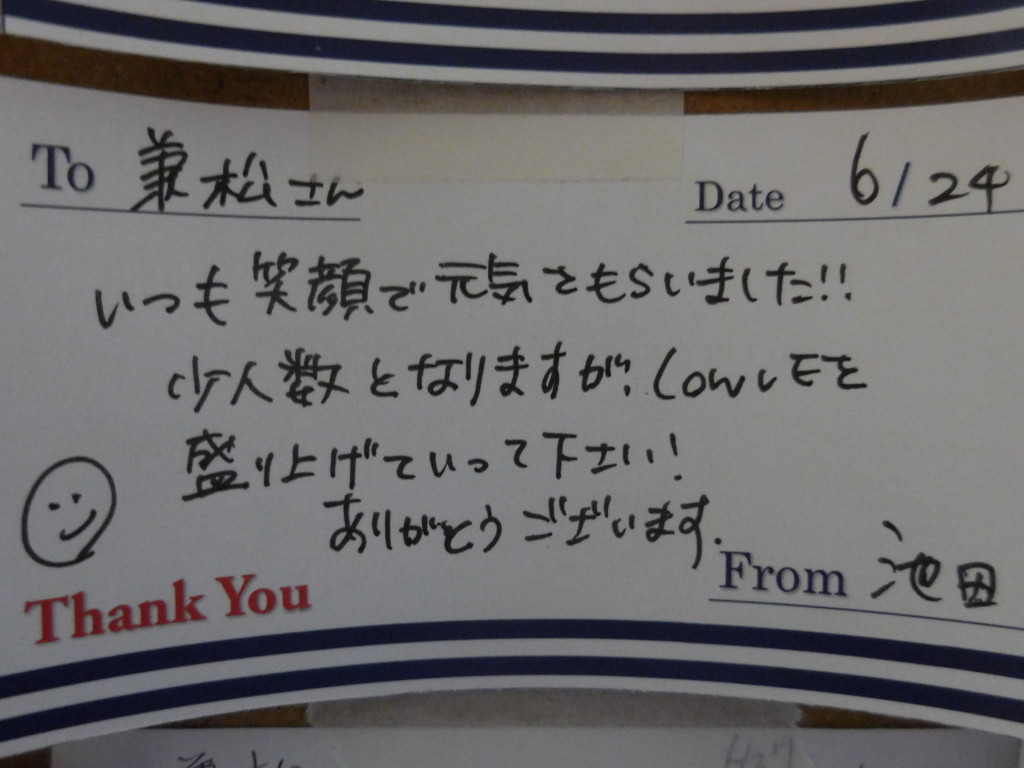 To 兼松さん
Date 6/24
いつも笑顔で元気をもらいました!!
少人数となりますが、
を
盛り上げていって下さい!
ありがとうございます.
Thank You
From 池田